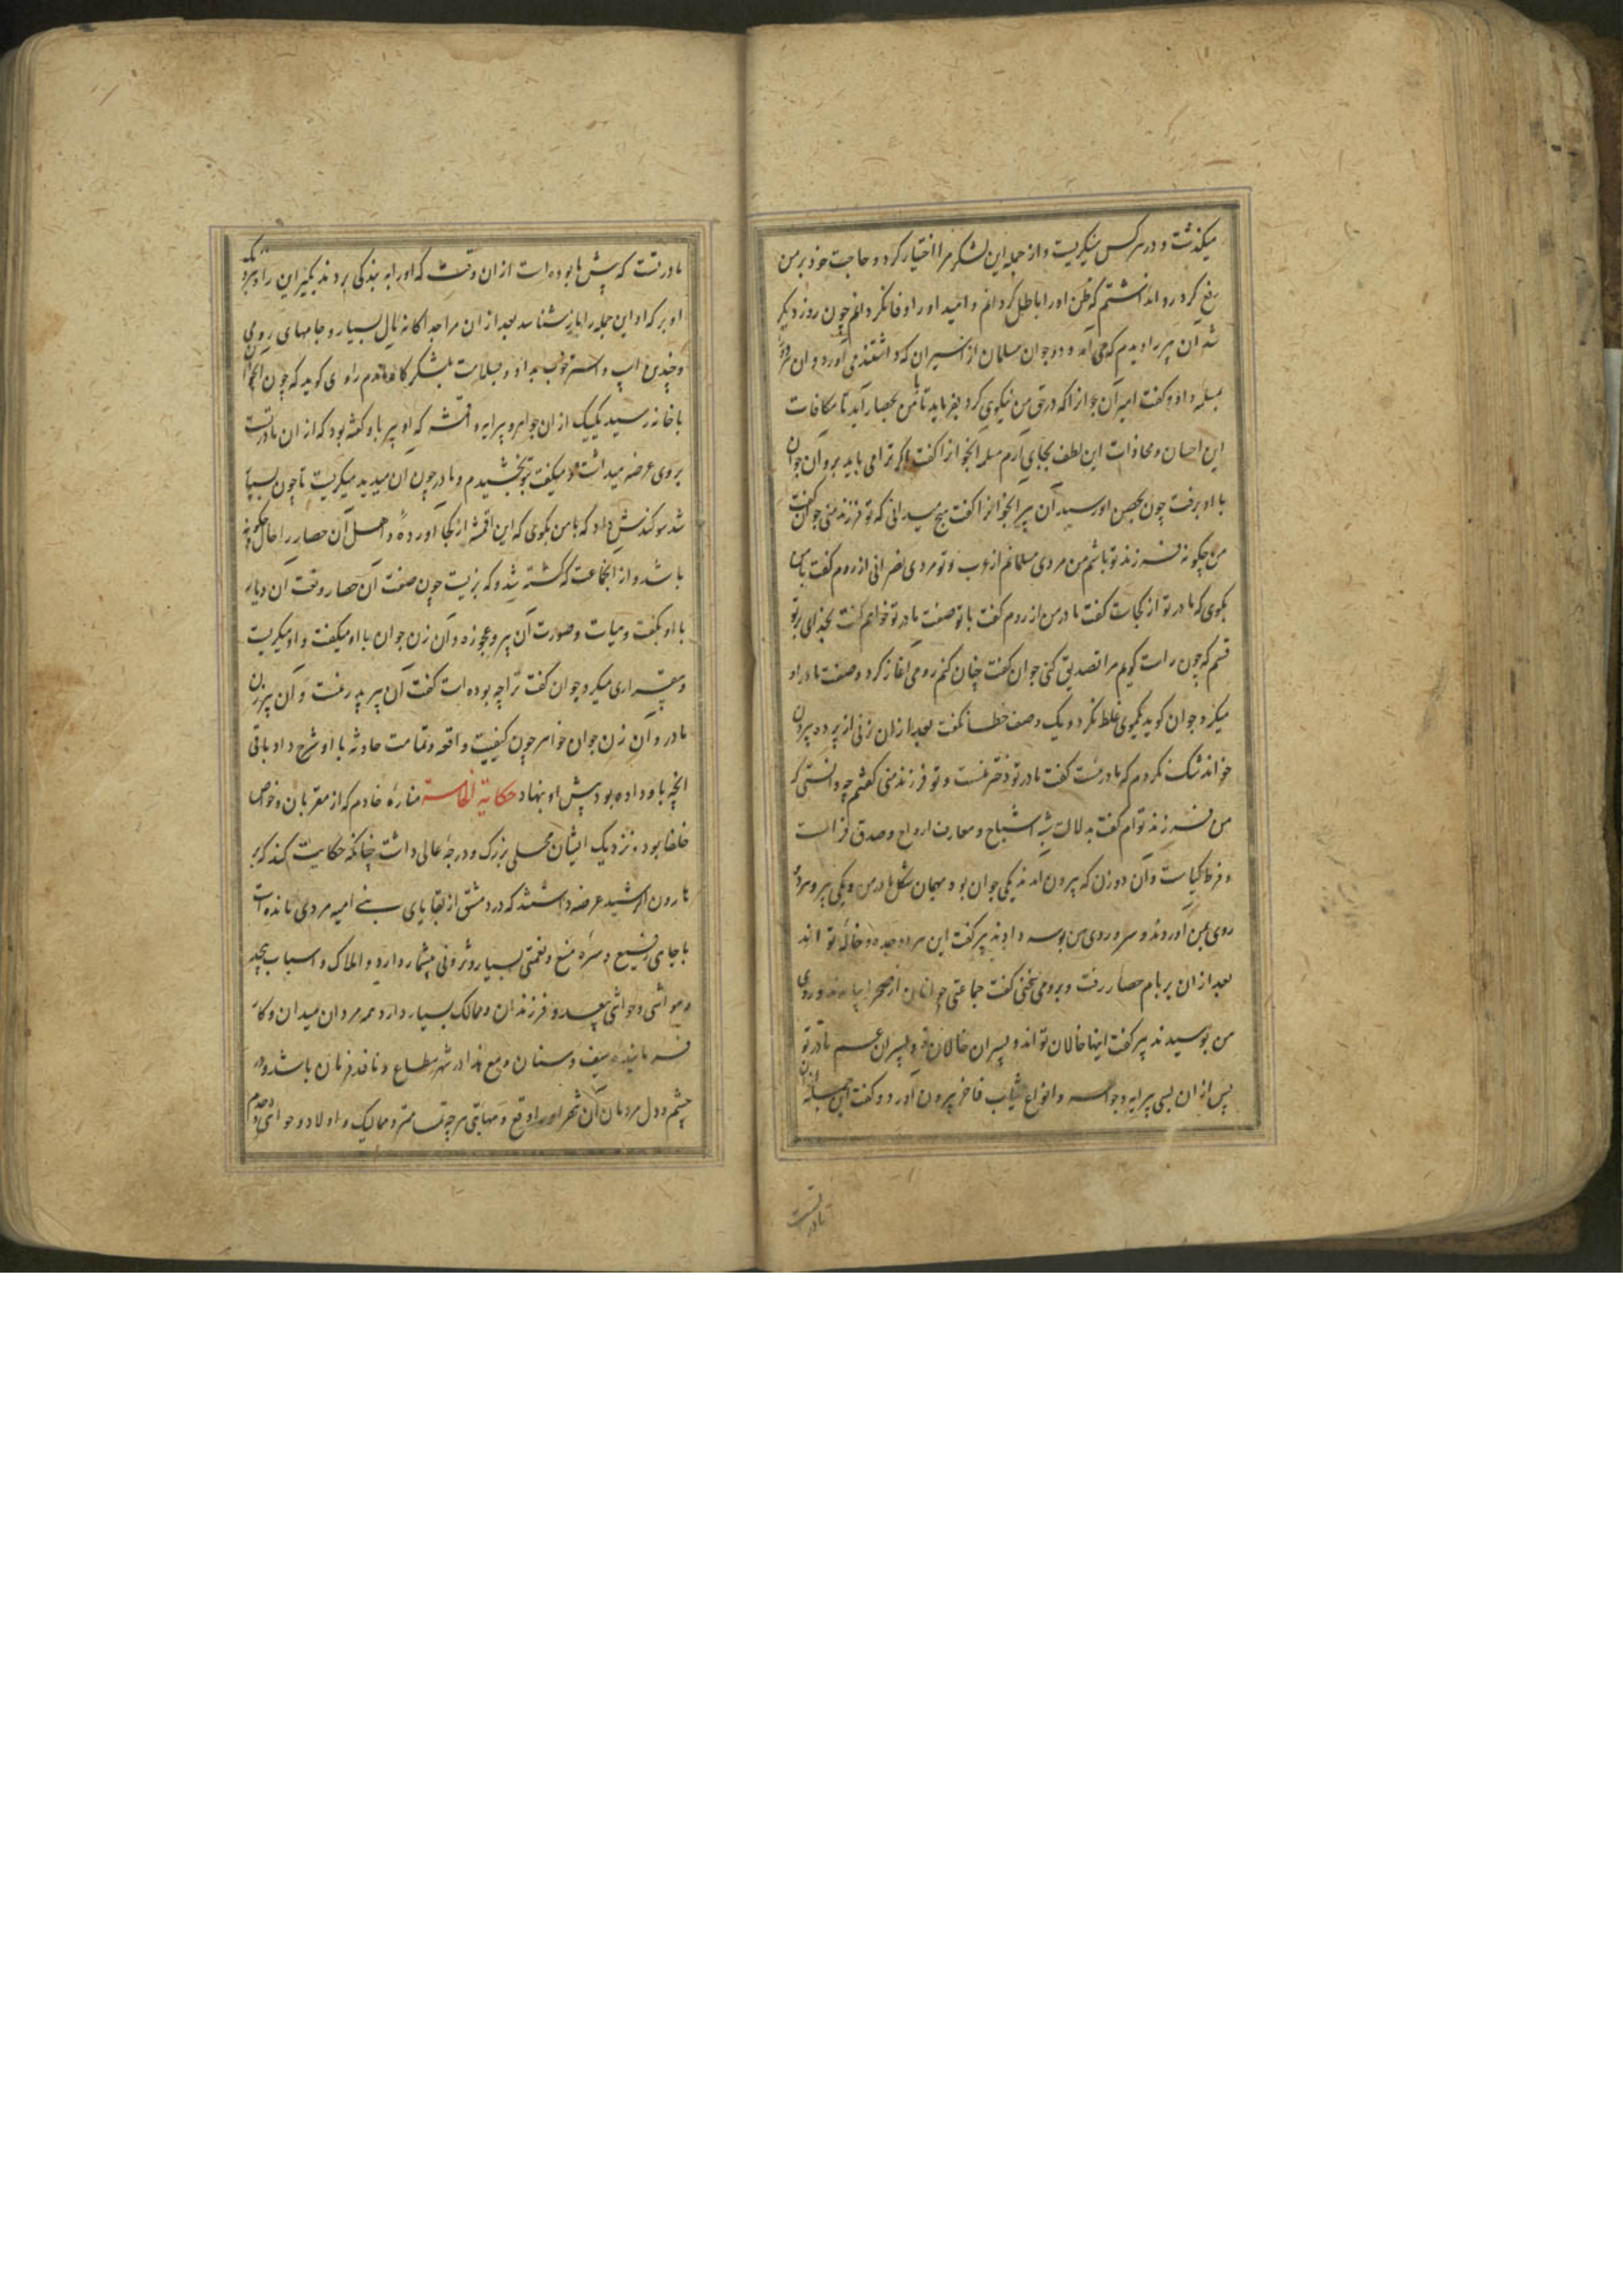 میکذشت و در هر کس مینکریست و از جمله این لشکر مرا اختیار کرد و حاجت خود بر من
رفع کرد روا نداشتم که ظن او را باطل کردانم و امید او را وفا نکردانم چون روز دیکر
شد آن پیر را دیدم که می آمد و دو جوان مسلمان از اسیران که داشتند می آورد و آن هر دو را
بمسلمه داد و کفت امیر آن جوانرا که در حق من نیکوی کرد بفرماید تا با من بحصار آید تا مکافات
این احسان و مجازات این لطف بجای آرم مسلمه انجوانرا کفت اکر ترا می باید برو آن جوان
با او برفت چون بحصن او رسید آن پیر انجوانرا کفت هیچ میدانی که تو فرزند منی جوان کفت
من چکونه فرزند تو باشم من مردی مسلمانم از عرب و تو مردی نصرانی از روم کفت با من
بکوی که مادر تو از کجاست کفت مادر من از روم کفت با تو صفت مادر تو خواهم کفت بخدای بر تو
قسم که چون راست کویم مرا تصدیق کنی جوان کفت چنان کنم رومی آغاز کرد و صفت مادر او
میکرد جوان کوید یکموی غلط نکرد و یک وصف خطا نکفت بعد از ان زنی از پرده بیرون
خواند شک نکردم که مادر منست کفت مادر تو دختر منست و تو فرزند منی کفتم چه دانستی که
من فرزند توام کفت بدلالت شبه اشباح و معارف ارواح و صدق فراست
و فرط کیاست و آن دو زن که بیرون آمدند یکی جوان بود و همچنان شکل مادر من و یکی پیر و هر دو
روی بمن آوردند و سر و روی من بوسه دادند پیر کفت این هر دو جده و خاله تو اند
بعد از ان بر بام حصار رفت و برومی سخنی کفت جماعتی جوانان از صحرا بیامدند و روی
من بوسیدند پیر کفت اینها خالان تو اند و پسران خالان تو و پسران عم مادر تو
پس از ان بسی پیرایه و جواهر و انواع ثیاب فاخر بیرون آورد و کفت این جمله از ان
مادر تست
مادر تست که پیش ما بوده است از ان وقت که او را به بندکی بردند بکیر این را و ببرد
او بر که او این جمله را باز شناسد بعد از ان مرا جداکانه مال بسیار و جامهای رومی
و چندین اسپ و استر خوب بداد و بسلامت بلشکر کاه رساندم راوی کوید که چون انجوان
با خانه رسید یک یک از ان جواهر و پیرایه و اقمشه که او پیر باو کفته بود که از ان مادر تست
بروی عرضه میداشت و میکفت بتو بخشیدم و مادر چون آن میدید میکریست تا چون بسیار
شد سوکندش داد که با من بکوی که این اقمشه از کجا آورده و اهل آن حصار را حال چکونه
باشد و از انجماعت که کشته شد و که بزیست چون صفت آن حصار وقت آن دیار
با او بکفت و هیات و صورت آن پیر و عجوزه و آن زن جوان با او میکفت و او میکریست
و بیقراری میکرد جوان کفت ترا چه بوده است کفت آن پیر پدر منست و آن پیرزن
مادر و آن زن جوان خواهر چون کیفیت واقعه و تمامت حادثه با او شرح داد باقی
انچه باو داده بود پیش او بنهاد حکایة الخامسة مناره خادم که از مقربان و خواص
خلفا بود و نزدیک ایشان محلی بزرک و درجه عالی داشت چنانکه حکایت کند که بر
هارون الرشید عرضه داشتند که در دمشق از بقایای بنی امیه مردی مانده است
با جاهی رفیع و سره منیع و نعمتی بسیار و ثروتی بیشمار دارد و املاک و اسباب بیحد
و مواشی و حواشی بیعدد و فرزندان و ممالک بسیار دارد همه مردان میدان و کار
فرماینده سیف و سنان و مع هذا در شهر مطاع و نافذ فرمان باشد و در
چشم و دل مردمان آن شهر او را وقع و مهابتی هر چه تمامتر و ممالیک و اولاد و حواشی و خدم